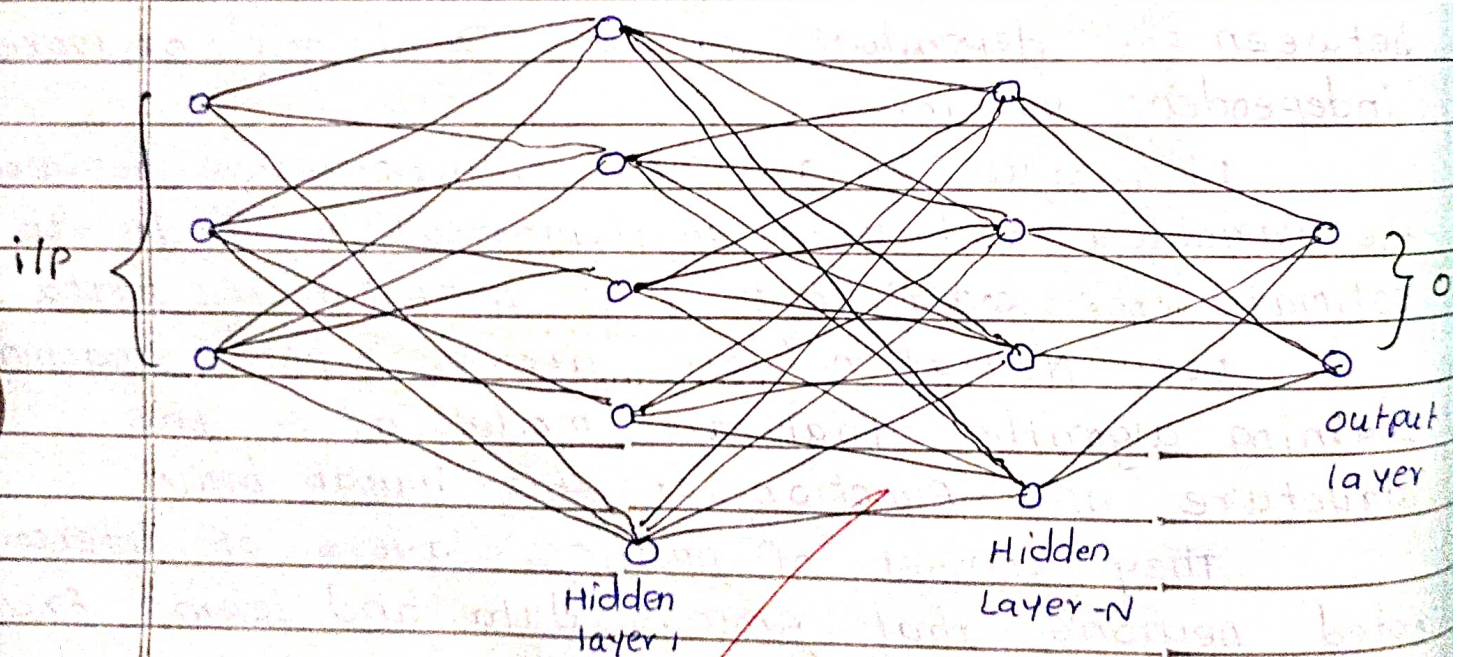 i/p
0
output
layer
Hidden
Layer-N
Hidden
layer 1